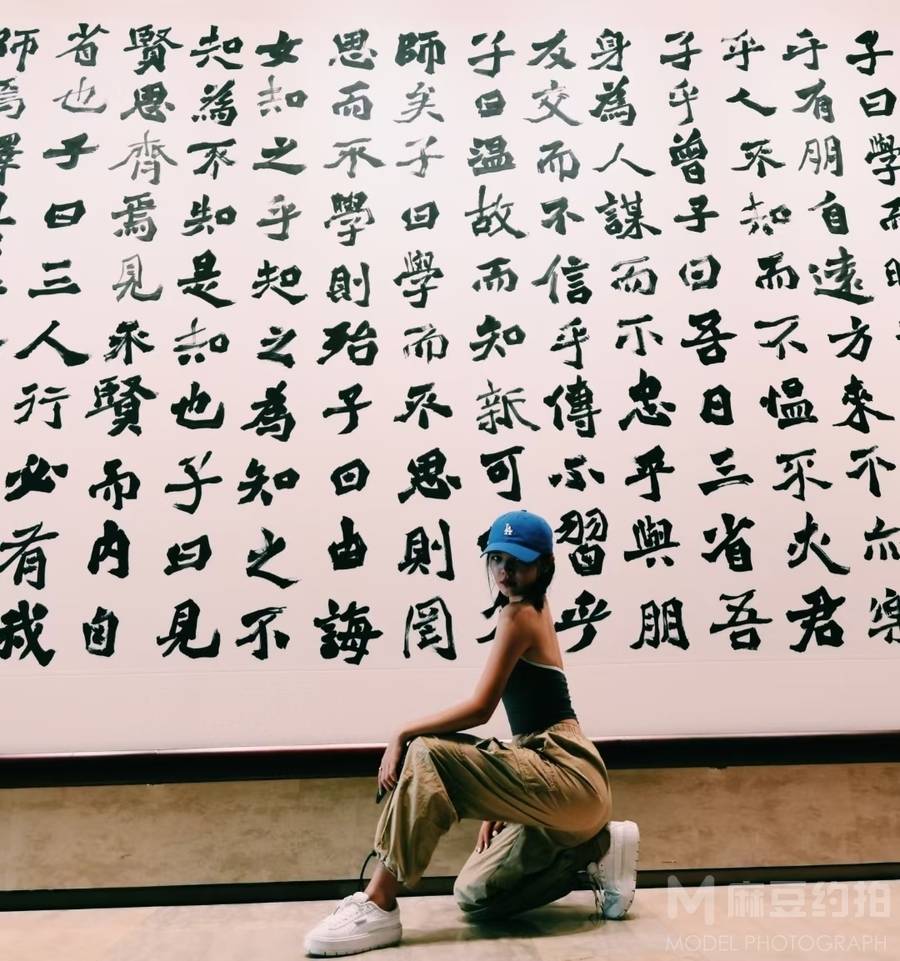 子曰學而
乎有朋自遠方來不亦樂
乎人不知而不愠不亦君
子乎曾子曰吾日三省吾
身為人謀而不忠乎與朋
友交而不信乎傳不習乎
子曰温故而知新可
師矣子曰學而不思則罔
思而不學則殆子曰由誨
女知之乎知之為知之不
知為不知是知也子曰見
賢思齊焉見不賢而內自
省也子曰三人行必有我
師焉擇
LA
M 麻豆约拍
MODEL PHOTOGRAPH